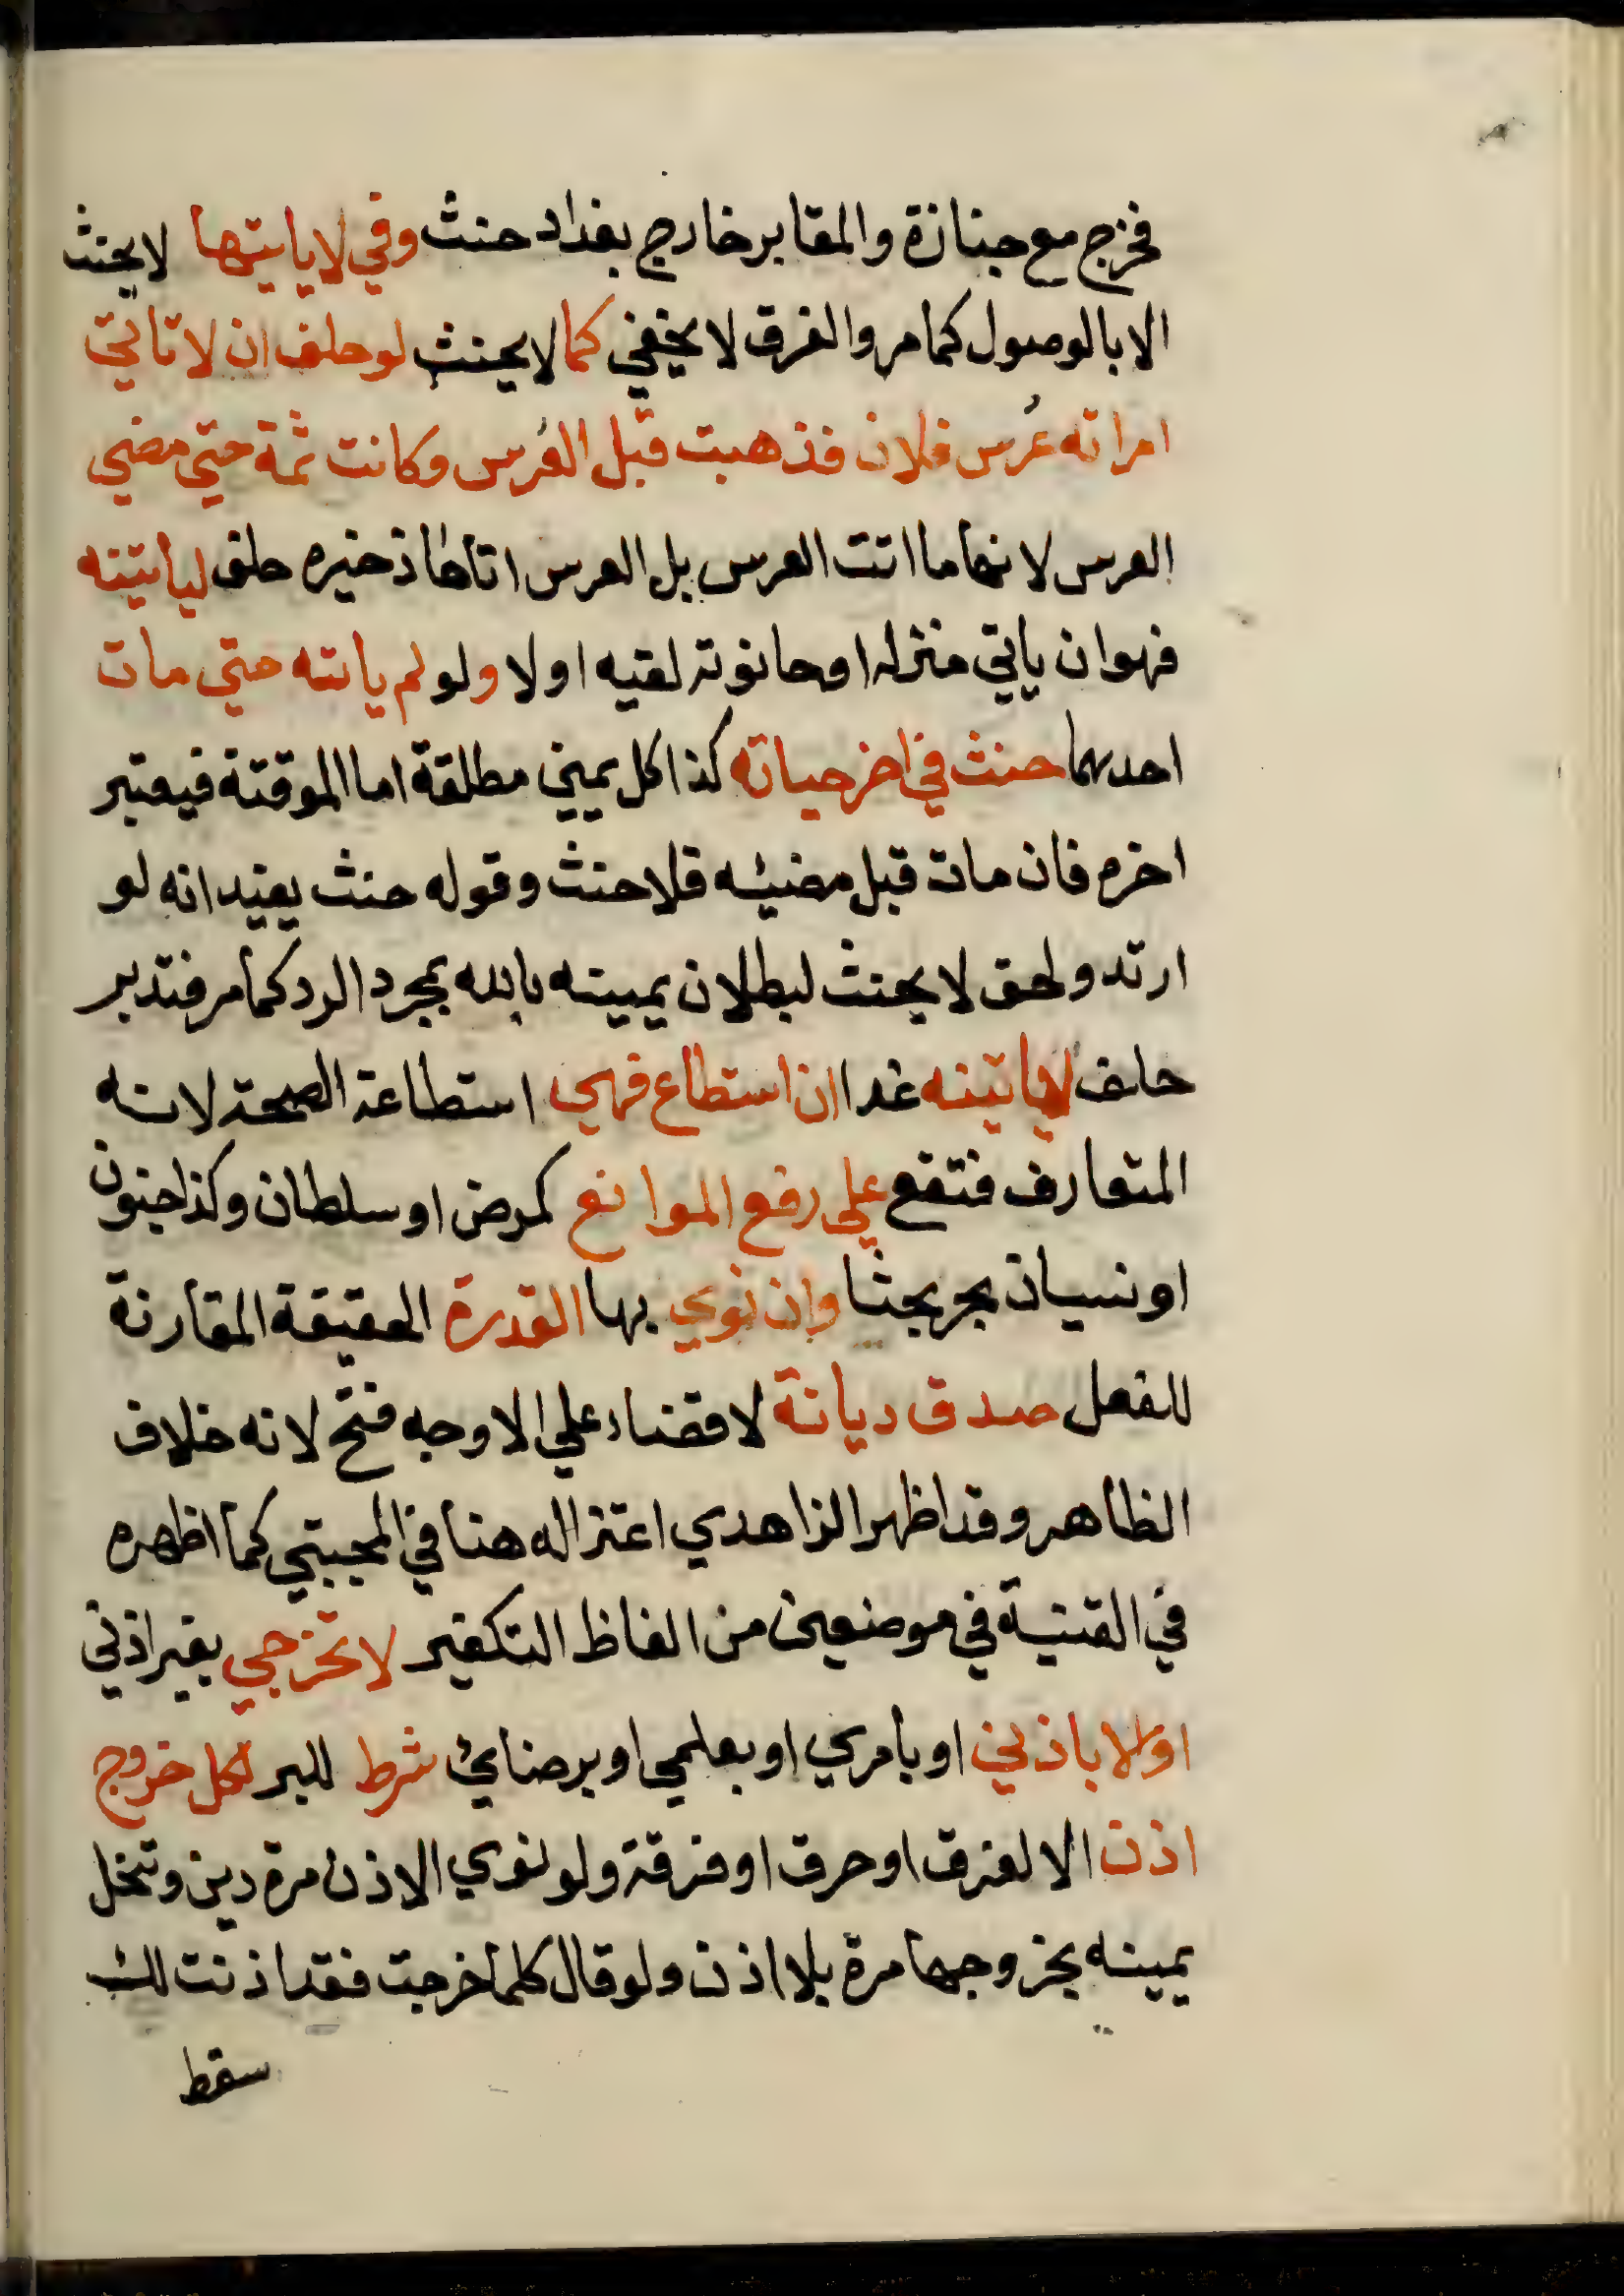 فخرج مع جنازة والمقابر خارج بغداد حنث وفي لا ياتيها لا يحنث
الا بالوصول كما مر والفرق لا يخفي كما لا يحنث لو حلف ان لا تاتي
امراته عُرس فلان فذهبت قبل العُرس وكانت ثمة حتي مضي
العرس لانها ما اتت العرس بل العرس اتاها ذخيره حلف لياتينه
فهو ان ياتي منزله او حانوته لقيه او لا ولو لم ياته حتي مات
احدهما حنث في اخر حياته كذا كل يمين مطلقة اما الموقتة فيعتبر
اخره فان مات قبل مضيئه فلا حنث وقوله حنث يفيد انه لو
ارتد ولحق لا يحنث لبطلان يمينه بالله بمجرد الرد كما مر فتدبر
حلف لياتينه غدا ان استطاع فهي استطاعة الصحة لانه
المتعارف فتقع علي رفع الموانع كمرض او سلطان وكذا جنون
او نسيان بحر بحثا وان نوي بها القدرة الحقيقة المقارنة
للفعل صدق ديانة لا قضاء علي الاوجه فتح لانه خلاف
الظاهر وقد اظهر الزاهدي اعتزاله هنا في المجبتي كما اظهره
في القنية في موضعين من الفاظ التكفير لا تخرجي بغير اذني
او الا باذني او بامري او بعلمي او برضائي شرط للبر لكل خروج
اذن الا لغرق او حرق او فرقة ولو نوي الاذن مرة دين وتنحل
يمينه بخروجها مرة بلا اذن ولو قال كلما خرجت فقد اذنت لك
سقط